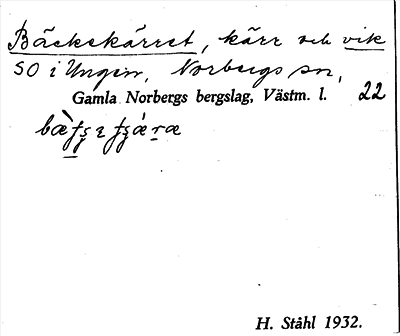 Bäckekärret, kärr och vik
SO i Ungen, Norbergs sn,
Gamla Norbergs bergslag, Västm. l. 22
H. Ståhl 1932.